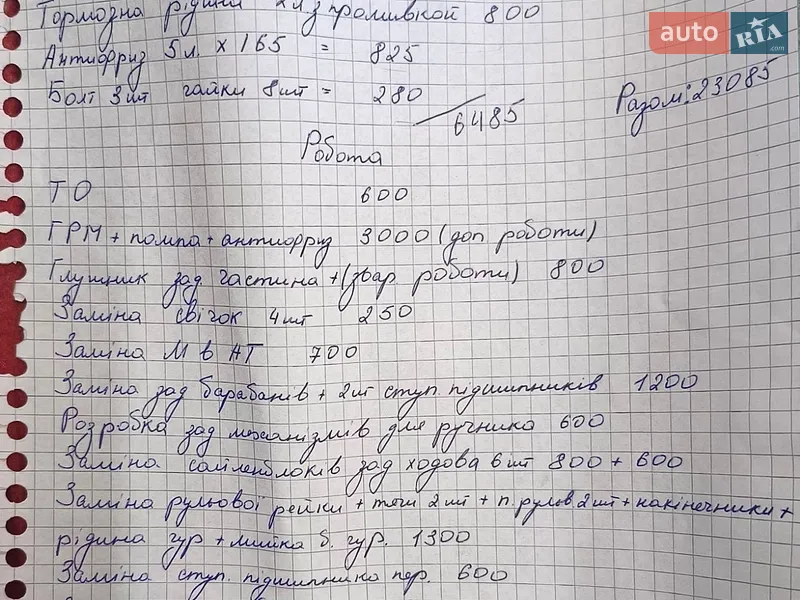 Тормозна рідина х из промивкой 800
auto RIA .com
Антифриз 5л. х 165 = 825
Болт 3шт гайки 8шт = 280
6485
Разом: 23085
Робота
ТО 600
ГРМ + помпа + антифриз 3000 (доп роботи)
Глушник зад частина + (звар роботи) 800
Заміна свічок 4шт 250
Заміна М в АТ 700
Заміна зад барабанів + 2шт ступ. підшипників 1200
Розробка зад механізмів для ручника 600
Заміна сайленблоків зад ходова 6шт 800 + 600
Заміна рульової рейки + тяги 2шт + п. рульв. 2шт + накінечники +
рідина гур + мийка б. гур. 1300
Заміна ступ. підшипника пер. 600